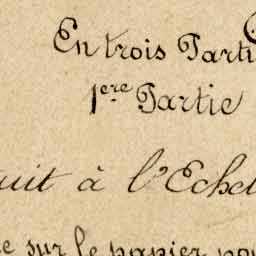 En trois Parti
1ère Partie
uit à l'Echel
e sur le papier pou